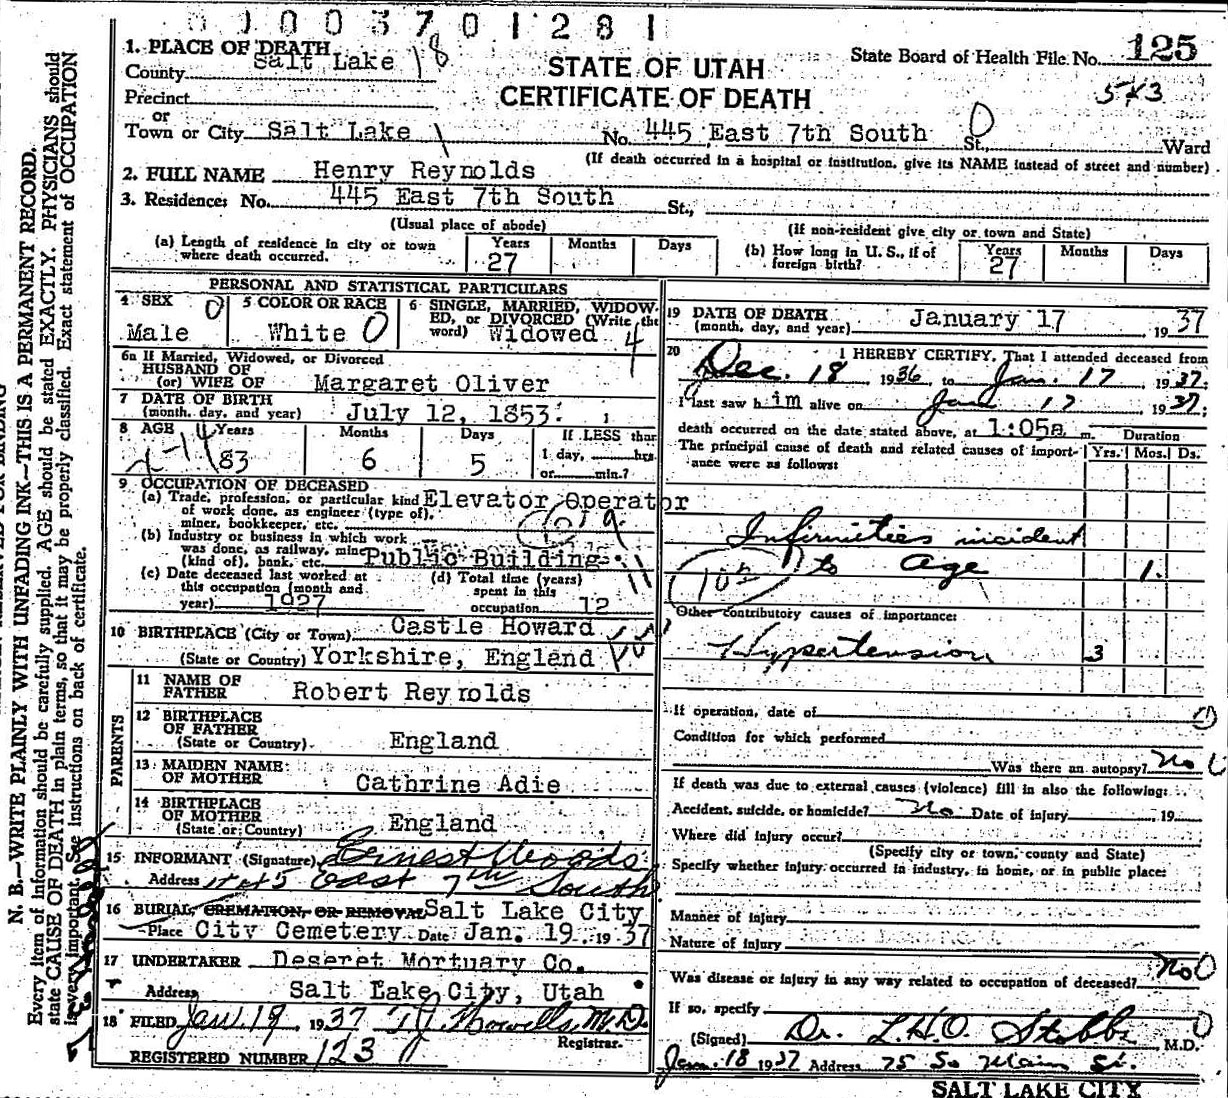 0 1 0 0 3 7 0 1 2 8 1
1. PLACE OF DEATH
County Salt Lake 18
STATE OF UTAH
CERTIFICATE OF DEATH
State Board of Health File No. 125
543
Precinct
or
Town or City Salt Lake No. 445 East 7th South St., Ward
(If death occurred in a hospital or institution, give its NAME instead of street and number)
2. FULL NAME Henry Reynolds
3. Residence: No. 445 East 7th South St.,
(Usual place of abode) (If non-resident give city or town and State)
(a) Length of residence in city or town where death occurred. Years 27 Months Days
(b) How long in U. S., if of foreign birth? Years 27 Months Days
PERSONAL AND STATISTICAL PARTICULARS
4 SEX Male 0
5 COLOR OR RACE White 0
6 SINGLE, MARRIED, WIDOWED, or DIVORCED (Write the word) Widowed 4
6a If Married, Widowed, or Divorced
HUSBAND OF
(or) WIFE OF Margaret Oliver
7 DATE OF BIRTH
(month, day, and year) July 12, 1853.
8 AGE Years 83 Months 6 Days 5 If LESS than
1 day, hrs.
or min.?
9 OCCUPATION OF DECEASED
(a) Trade, profession, or particular kind Elevator Operator
of work done, as engineer (type of),
miner, bookkeeper, etc.
(b) Industry or business in which work
was done, as railway, mine Public Building
(kind of), bank, etc.
(c) Date deceased last worked at
this occupation (month and
year) 1927
(d) Total time (years)
spent in this
occupation 12
10 BIRTHPLACE (City or Town) Castle Howard
(State or Country) Yorkshire, England
PARENTS
11 NAME OF
FATHER Robert Reynolds
12 BIRTHPLACE
OF FATHER
(State or Country) England
13 MAIDEN NAME
OF MOTHER Cathrine Adie
14 BIRTHPLACE
OF MOTHER
(State or Country) England
15 INFORMANT (Signature) Ernest Woods
Address 445 East 7th South
16 BURIAL, CREMATION, OR REMOVAL Salt Lake City
Place City Cemetery Date Jan. 19, 1937
17 UNDERTAKER Deseret Mortuary Co.
Address Salt Lake City, Utah
18 FILED Jan. 19, 1937 T J Howells M.D.
Registrar.
REGISTERED NUMBER 123
19 DATE OF DEATH
(month, day, and year) January 17 1937
20 I HEREBY CERTIFY, That I attended deceased from
Dec. 18, 1936, to Jan. 17, 1937;
I last saw him alive on Jan 17 1937;
death occurred on the date stated above, at 1:05a m. Duration
The principal cause of death and related causes of importance were as follows: Yrs. Mos. Ds.
Infirmities incident
to age 1
Other contributory causes of importance:
Hypertension 3
If operation, date of
Condition for which performed
Was there an autopsy? No
If death was due to external causes (violence) fill in also the following:
Accident, suicide, or homicide? No Date of injury 19
Where did injury occur?
(Specify city or town, county and State)
Specify whether injury occurred in industry, in home, or in public place:
Manner of injury
Nature of injury
Was disease or injury in any way related to occupation of deceased? No
If so, specify
(Signed) Dr. L.H.O. Stobbe M.D.
Jan. 18 1937 Address 75 So Main St.
SALT LAKE CITY
N. B.—WRITE PLAINLY WITH UNFADING INK—THIS IS A PERMANENT RECORD.
Every item of information should be carefully supplied. AGE should be stated EXACTLY. PHYSICIANS should
state CAUSE OF DEATH in plain terms, so that it may be properly classified. Exact statement of OCCUPATION
is very important. See instructions on back of certificate.